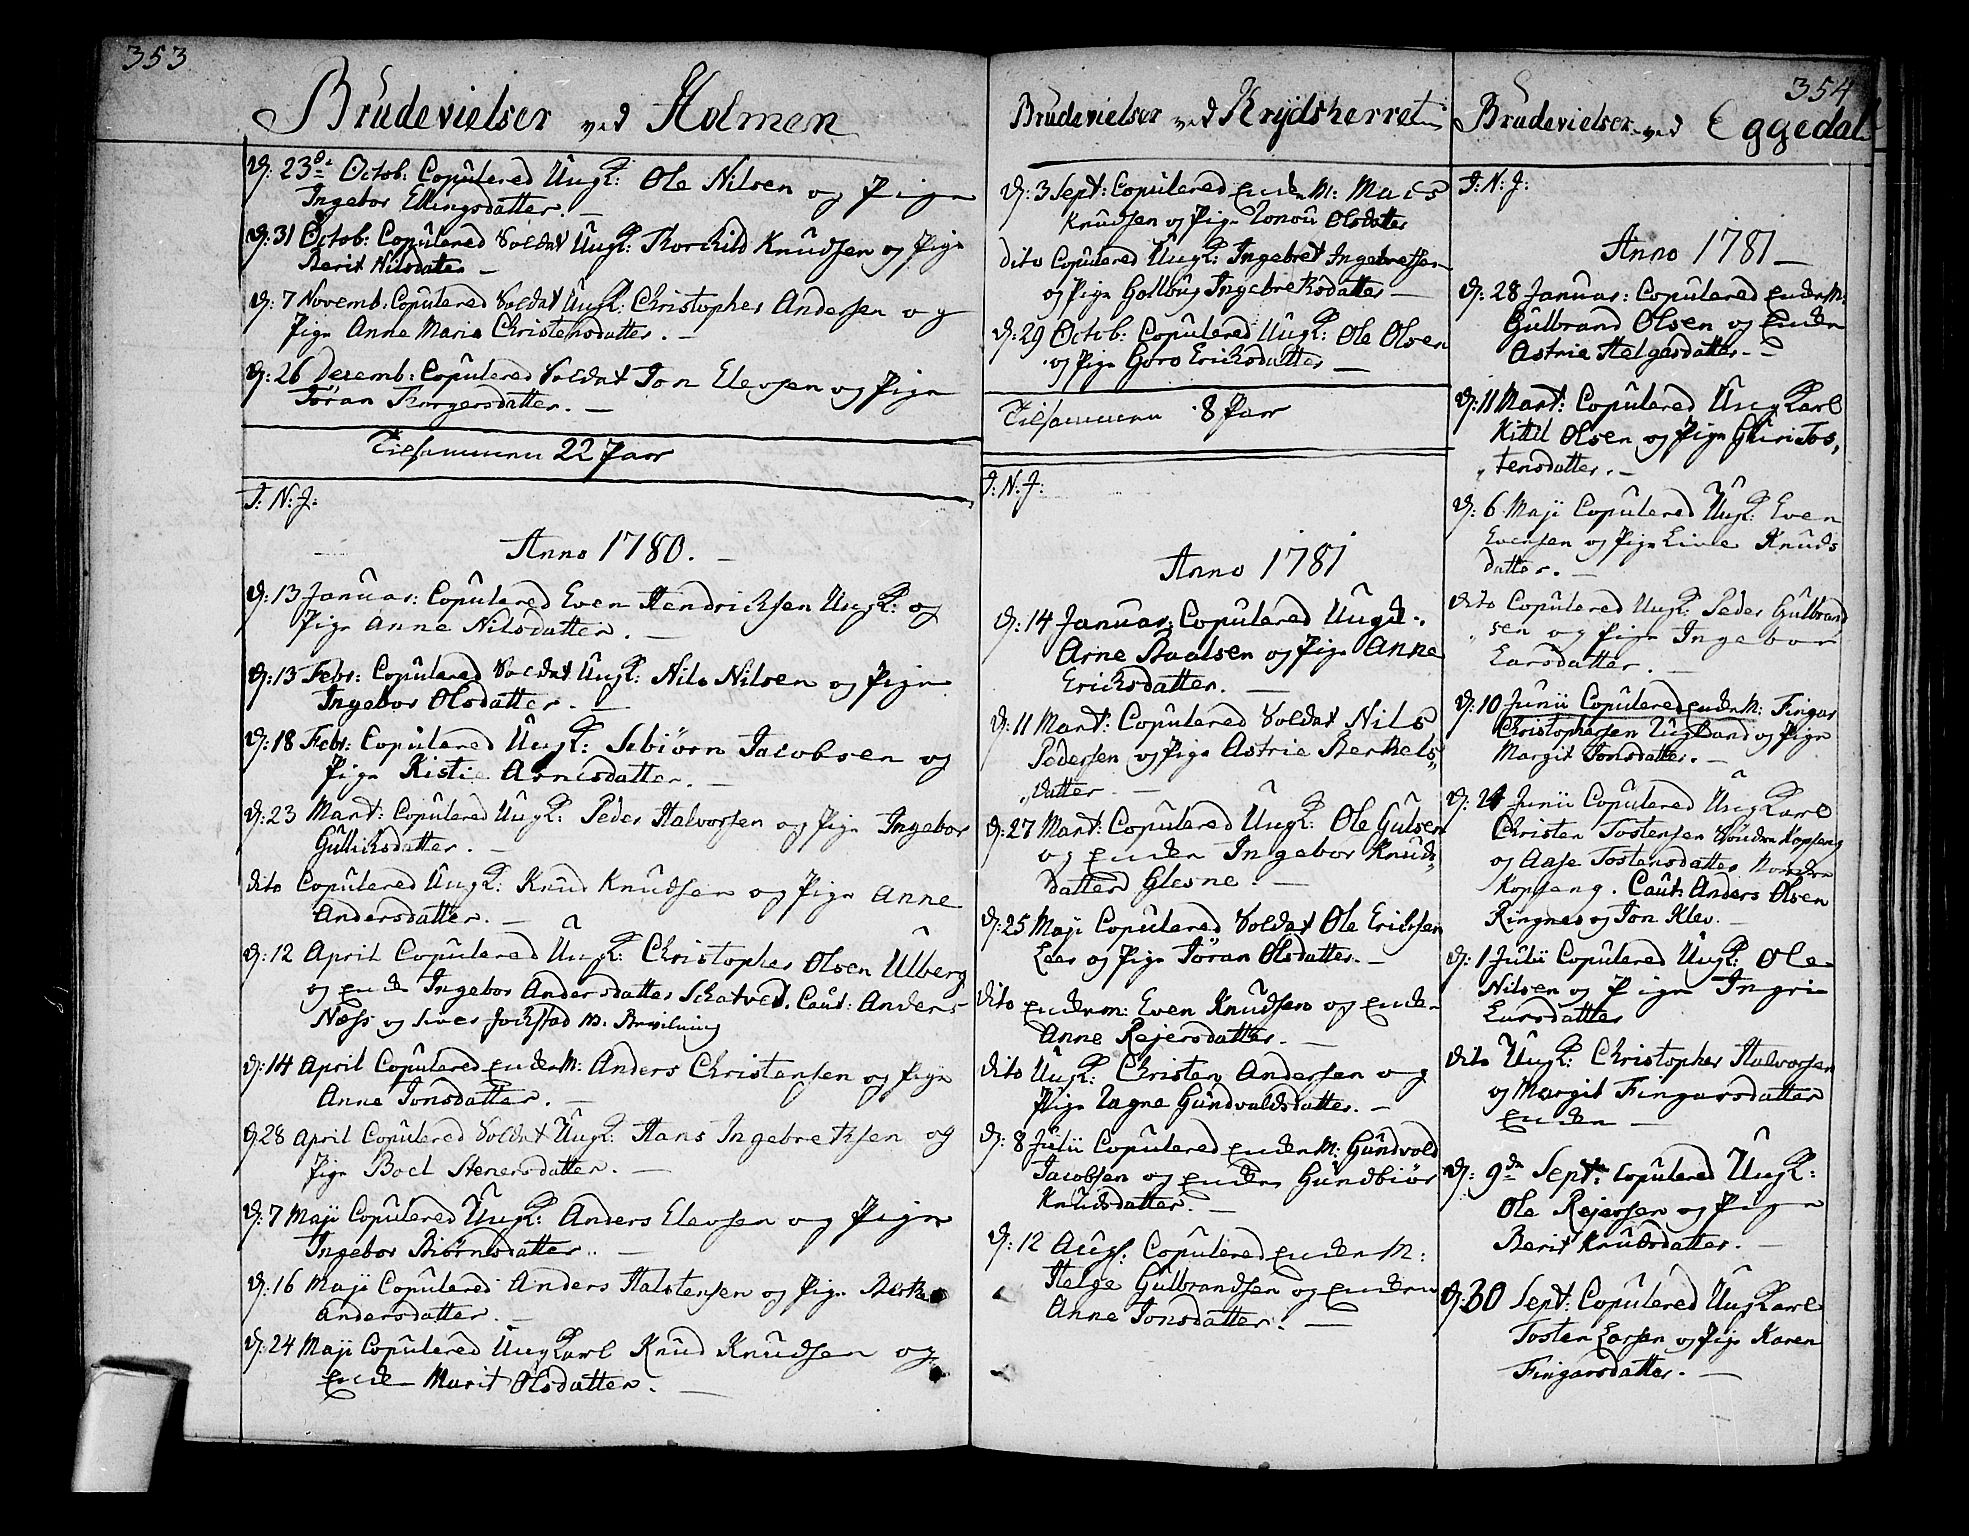 353
Brudevielser ved Holmen
D: 23de Octob: Copulered Ungk: Ole Nilsen og Pige
Ingebor Ellingsdatter. —
D: 31 Octob: Copulered Soldat Ungk: Thorchild Knudsen og Pige
Berit Nilsdatter —
D: 7 Novemb. Copulered Soldat Ungk: Christopher Andersen og
Pige Anne Marie Christensdatter. —
D: 26 Decemb: Copulered Soldat Jon Elevsen og Pige
Jöran Thorgersdatter. —
Tilsammen 22 Paar
I: N: J:
Anno 1780. —
D: 13 Januar: Copulered Even Hendrichsen Ungk: og
Pige Anne Nilsdatter. —
D: 13 Febr: Copulered Soldat Ungk: Nils Nilsen og Pige
Ingebor Olsdatter. —
D: 18 Febr: Copulered Ungk: Sebiörn Jacobsen og
Pige Kistie Arnesdatter. —
D: 23 Mart: Copulered Ungk: Peder Halvorsen og Pige Ingebor
Gulliksdatter. —
dito Copulered Ungk: Knud Knudsen og Pige Anne
Andersdatter. —
D: 12 April Copulered Ungk: Christopher Olsen Ulberg
og Enke Ingebor Andersdatter Schatved. Caut: Anders
Næss og Iver Jokstad
D: 14 April Copulered EnkeM: Anders Christensen og Pige
Anne Jonsdatter. —
D: 28 April Copulered Soldat Ungk: Hans Ingebretsen og
Pige Boel Stenersdatter. —
D: 7 Maji Copulered Ungk: Anders Elevsen og Pige
Ingebor Biörnsdatter. —
D: 16 Maji Copulered Anders Halstensen og Pige
Andersdatter. —
D: 24 Maji Copulered Ungkarl Knud Knudsen og
Enke Marit Olsdatter. —
Brudevielser ved Krydsherret
D: 3 Sept: Copulered Enke M: Mads
Knudsen og Pige Olsdatter
dito Copulered Ungk: Ingebret Ingebretsen
og Pige Golbiig Ingebretsdatter —
D: 29 Octob: Copulered Ungk: Ole Olsen
og Pige Goro Ericksdatter —
Tilsammen 8 Paar
I: N: J:
Anno 1781
D: 14 Januar: Copulered Ungk:
Arne Paalsen og Pige Anne
Ericksdatter. —
D: 11 Mart: Copulered Soldat Nils
Pedersen og Pige Astrie Berthels„
„datter. —
D: 27 Mart: Copulered Ungk: Ole Gulsen
og Enken Ingebor Knuds„
datter Glesne. —
D: 25 Maji Copulered Soldat Ole Ericksen
Leer og Pige Jöran Olsdatter. —
dito Enkem: Even Knudsen og Enken
Anne Rejersdatter. —
dito Ungk: Christen Andersen og
Pige Gundvaldsdatter. —
D: 8 Julii Copulered EnkeM: Gundvold
Jacobsen og Enken Gundbiör
Knudsdatter. —
D: 12 Aug: Copulered EnkeM:
Helge Gulbrandsen og Enken
Anne Jonsdatter. —
354
Brudevielser ved Eggedal
I: N: J:
Anno 1781 —
D: 28 Januar: Copulered EnkeM:
Gulbrand Olsen og Enken
Astrie Helgesdatter. —
D: 11 Mart: Copulered Ungkarl
Kittil Olsen og Pige Guri Tos„
„tensdatter. —
D: 6 Maji Copulered Ungk: Even
Evensen og Pige Live Knuds
datter. —
dito Copulered Ungk: Peder Gulbrand
„sen og Pige Ingebor
Larsdatter. —
D: 10 Junii Copulered EnkeM: Fingar
Christophersen Ugland og Pige
Margit Jonsdatter. —
D: 24 Junii Copulered Ungkarl
Christen Tostensen Söndre Kopseng
og Aase Tostensdatter Nordre
Kopseng. Caut: Anders Olsen
Ringnes og Jon Klev. —
D: 1 Julii Copulered Ungk: Ole
Nilsen og Pige Ingri
Larsdatter
dito Ungk: Christopher Halvorsen
og Margit Fingarsdatter
Enken —
D: 9de Sept: Copulered Ungk:
Ole Rejersen og Pige
Berit Knudsdatter. —
D: 30 Sept: Copulered Ungkarl
Tosten Larsen og Pige Karen
Fingarsdatter. —